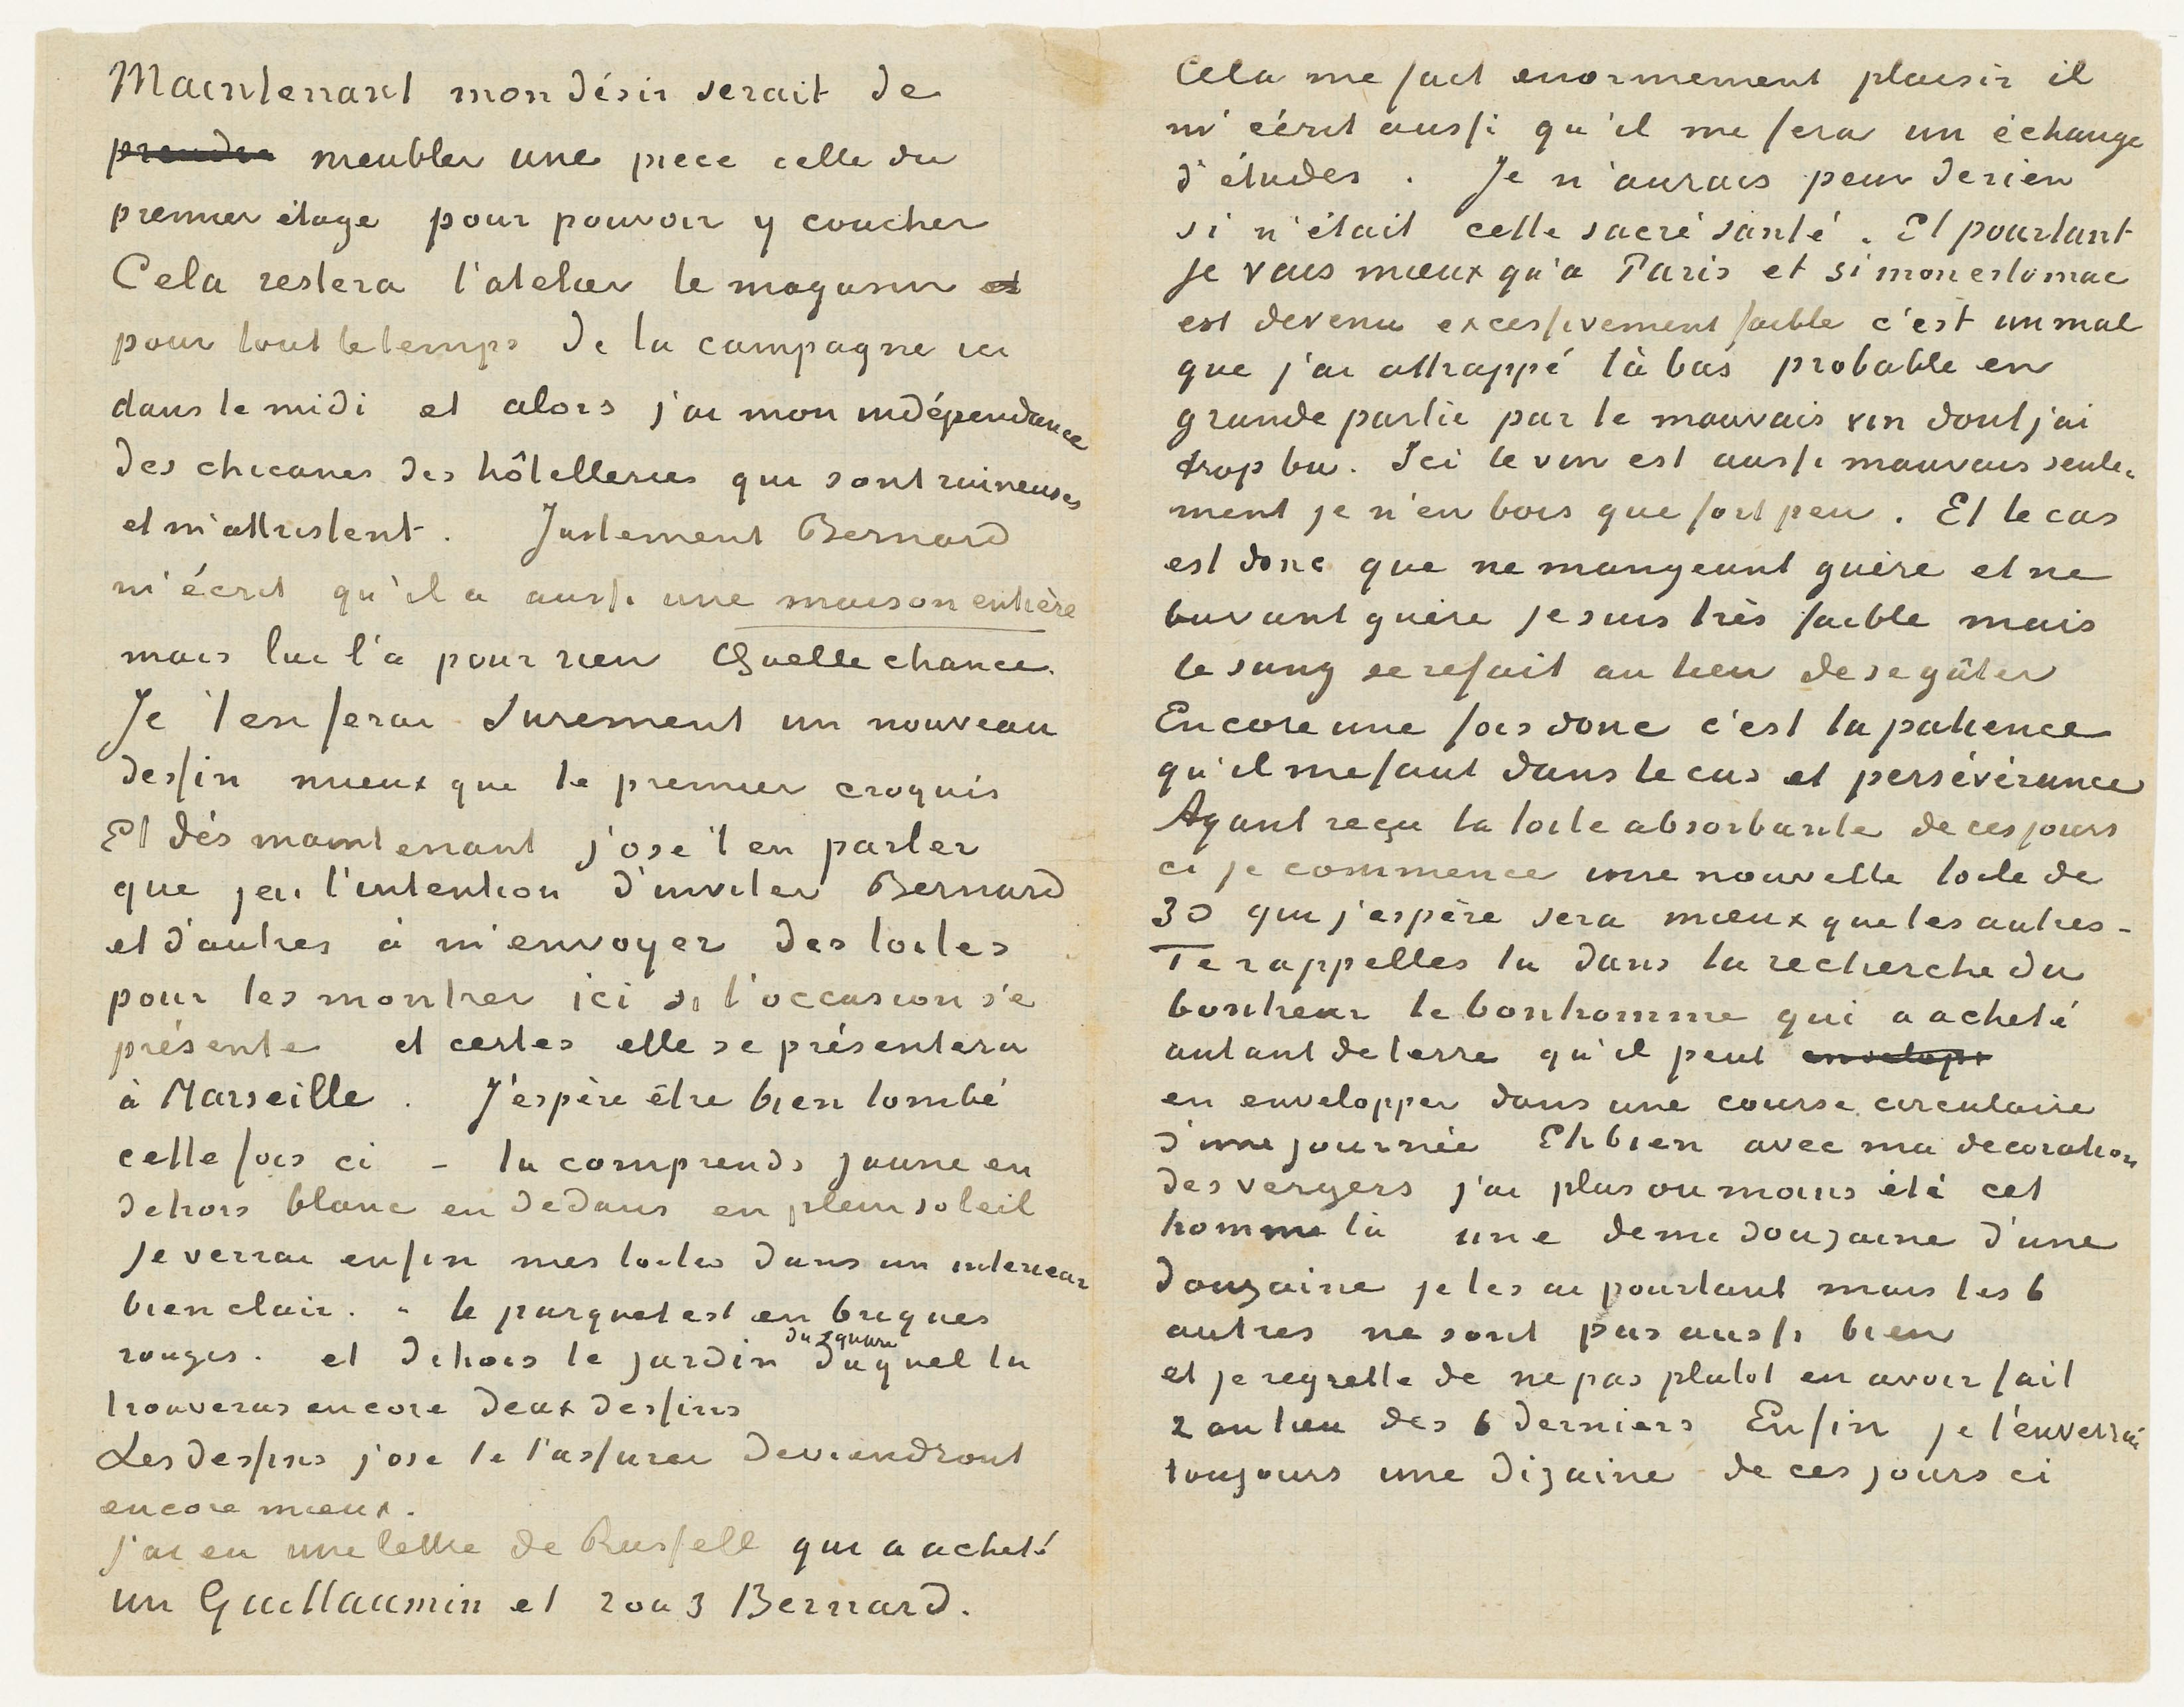 Maintenant mon désir serait de
prendre meubler une piece celle du
premier étage pour pouvoir y coucher
Cela restera l'atelier le magasin et
pour tout le temps de la campagne ici
dans le midi et alors j'ai mon indépendance
des chicanes des hôtelleries qui sont ruineuses
et m'attristent. Justement Bernard
m'écrit qu'il a aussi une maison entière
mais lui l'a pour rien Quelle chance.
Je t'en ferai surement un nouveau
dessin mieux que le premier croquis
Et dés maintenant j'ose t'en parler
que j'ai l'intention d'inviter Bernard
et d'autres à m'envoyer des toiles
pour les montrer ici si l'occasion s'e
présente et certes elle se présentera
à Marseille. J'espère être bien tombé
cette fois ci – tu comprends jaune en
dehors blanc en dedans en plein soleil
je verrai enfin mes toiles dans un interieur
bien clair. – le parquet est en briques
rouges. et dehors le jardin du square duquel tu
trouveras encore deux dessins
Les dessins j'ose te l'assurer deviendront
encore mieux.
J'ai eu une lettre de Russell qui a acheté
un Guillaumin et 2 ou 3 Bernard.
Cela me fait enormement plaisir il
m'écrit aussi qu'il me fera un échange
d'études. Je n'aurais peur de rien
si n'était cette sacré santé. Et pourtant
je vais mieux qu'a Paris et si mon estomac
est devenu excessivement faible c'est un mal
que j'ai attrappé là bas probable en
grande partie par le mauvais vin dont j'ai
trop bu. Ici le vin est aussi mauvais seule-
ment je n'en bois que fort peu. Et le cas
est donc que ne mangeant guère et ne
buvant guère je suis très faible mais
le sang se refait au lieu de se gâter
Encore une fois donc c'est la patience
qu'il me faut dans le cas et persévérance
Ayant reçu la toile absorbante de ces jours
ci je commence une nouvelle toile de
30 qui j'espère sera mieux que les autres –
Te rappelles tu dans la recherche du
bonheur le bonhomme qui a acheté
autant de terre qu'il peut envelope
en envelopper dans une course circulaire
d'une journée Eh bien avec ma decoration
des vergers j'ai plus ou moins été cet
homme là une demi douzaine d'une
douzaine je les ai pourtant mais les 6
autres ne sont pas aussi bien
et je regrette de ne pas plutot en avoir fait
2 au lieu des 6 derniers Enfin je t'enverrai
toujours une dizaine de ces jours ci